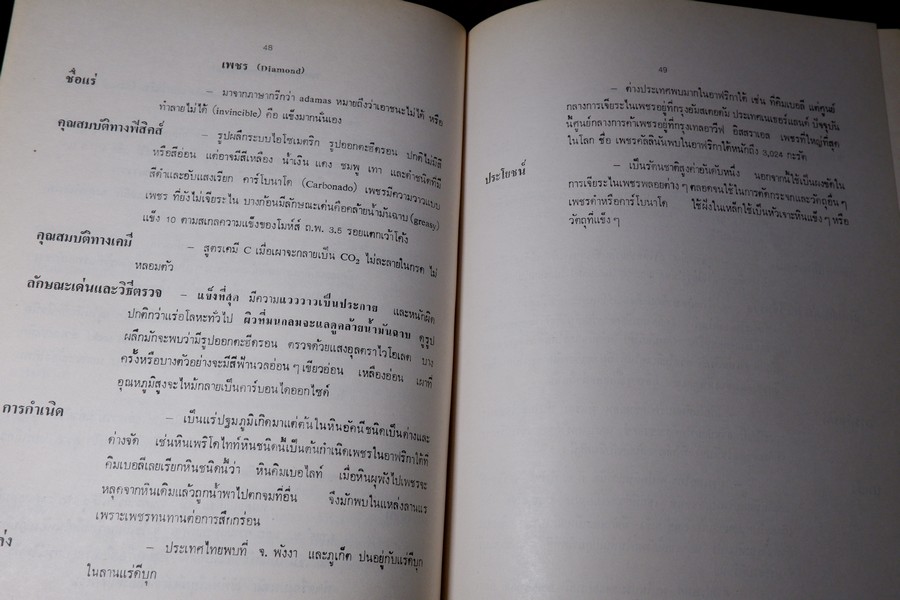 48
เพชร (Diamond)
ชื่อแร่
– มาจากภาษากรีกว่า adamas หมายถึงว่าเอาชนะไม่ได้ หรือ
ทำลายไม่ได้ (invincible) คือ แข็งมากนั่นเอง
คุณสมบัติทางฟิสิกส์
– รูปผลึกระบบไอโซเมตริก รูปออกตะฮีดรอน ปกติไม่มีสี
หรือสีอ่อน แต่อาจมีสีเหลือง น้ำเงิน แดง ชมพู เทา และดำชนิดที่มี
สีดำและอับแสงเรียก คาร์โบนาโด (Carbonado) เพชรมีความวาวแบบ
เพชร ที่ยังไม่เจียระไน บางก้อนมีลักษณะเด่นคือคล้ายน้ำมันฉาบ (greasy)
แข็ง 10 ตามสเกลความแข็งของโมห์ส์ ถ.พ. 3.5 รอยแตกเว้าโค้ง
คุณสมบัติทางเคมี
– สูตรเคมี C เมื่อเผาจะกลายเป็น CO₂ ไม่ละลายในกรด ไม่
หลอมตัว
ลักษณะเด่นและวิธีตรวจ – แข็งที่สุด มีความแวววาวเป็นประกาย และหนักผิด
ปกติกว่าแร่อโลหะทั่วไป ผิวที่มนกลมจะแลดูคล้ายน้ำมันฉาบ ดูรูป
ผลึกมักจะพบว่ามีรูปออกตะฮีดรอน ตรวจด้วยแสงอุลตราไวโอเลต บาง
ครั้งหรือบางตัวอย่างจะมีสีฟ้านวลอ่อน ๆ เขียวอ่อน เหลืองอ่อน เผาที่
อุณหภูมิสูงจะไหม้กลายเป็นคาร์บอนไดออกไซด์
การกำเนิด
– เป็นแร่ปฐมภูมิเกิดมาแต่ต้นในหินอัคนีชนิดเป็นด่างและ
ด่างจัด เช่นหินเพริโดไทท์หินชนิดนี้เป็นต้นกำเนิดเพชรในอาฟริกาใต้ที่
คิมเบอลีเลยเรียกหินชนิดนี้ว่า หินคิมเบอไลท์ เมื่อหินผุพังไปเพชรจะ
หลุดจากหินเดิมแล้วถูกน้ำพาไปตกจมที่อื่น จึงมักพบในแหล่งลานแร่
เพราะเพชรทนทานต่อการสึกกร่อน
– ประเทศไทยพบที่ จ. พังงา และภูเก็ต ปนอยู่กับแร่ดีบุก
ในลานแร่ดีบุก
49
– ต่างประเทศพบมากในอาฟริกาใต้ เช่น ที่คิมเบอลี แต่ศูนย์
กลางการเจียระไนเพชรอยู่ที่กรุงอัมสเตอดัม ประเทศเนเธอร์แลนด์ ปัจจุบัน
นี้ศูนย์กลางการค้าเพชรอยู่ที่กรุงเทลอาวีฟ อิสสราเอล เพชรที่ใหญ่ที่สุด
ในโลก ชื่อ เพชรคัลลินันพบในอาฟริกาใต้หนักถึง 3,024 กะรัต
ประโยชน์
– เป็นรัตนชาติสูงค่าอันดับหนึ่ง นอกจากนี้ใช้เป็นผงขัดใน
การเจียระไนเพชรพลอยต่าง ๆ ตลอดจนใช้ในการตัดกระจกและวัตถุอื่น ๆ
เพชรดำหรือคาร์โบนาโด ใช้ฝังในเหล็กใช้เป็นหัวเจาะหินแข็ง ๆ หรือ
วัตถุที่แข็ง ๆ